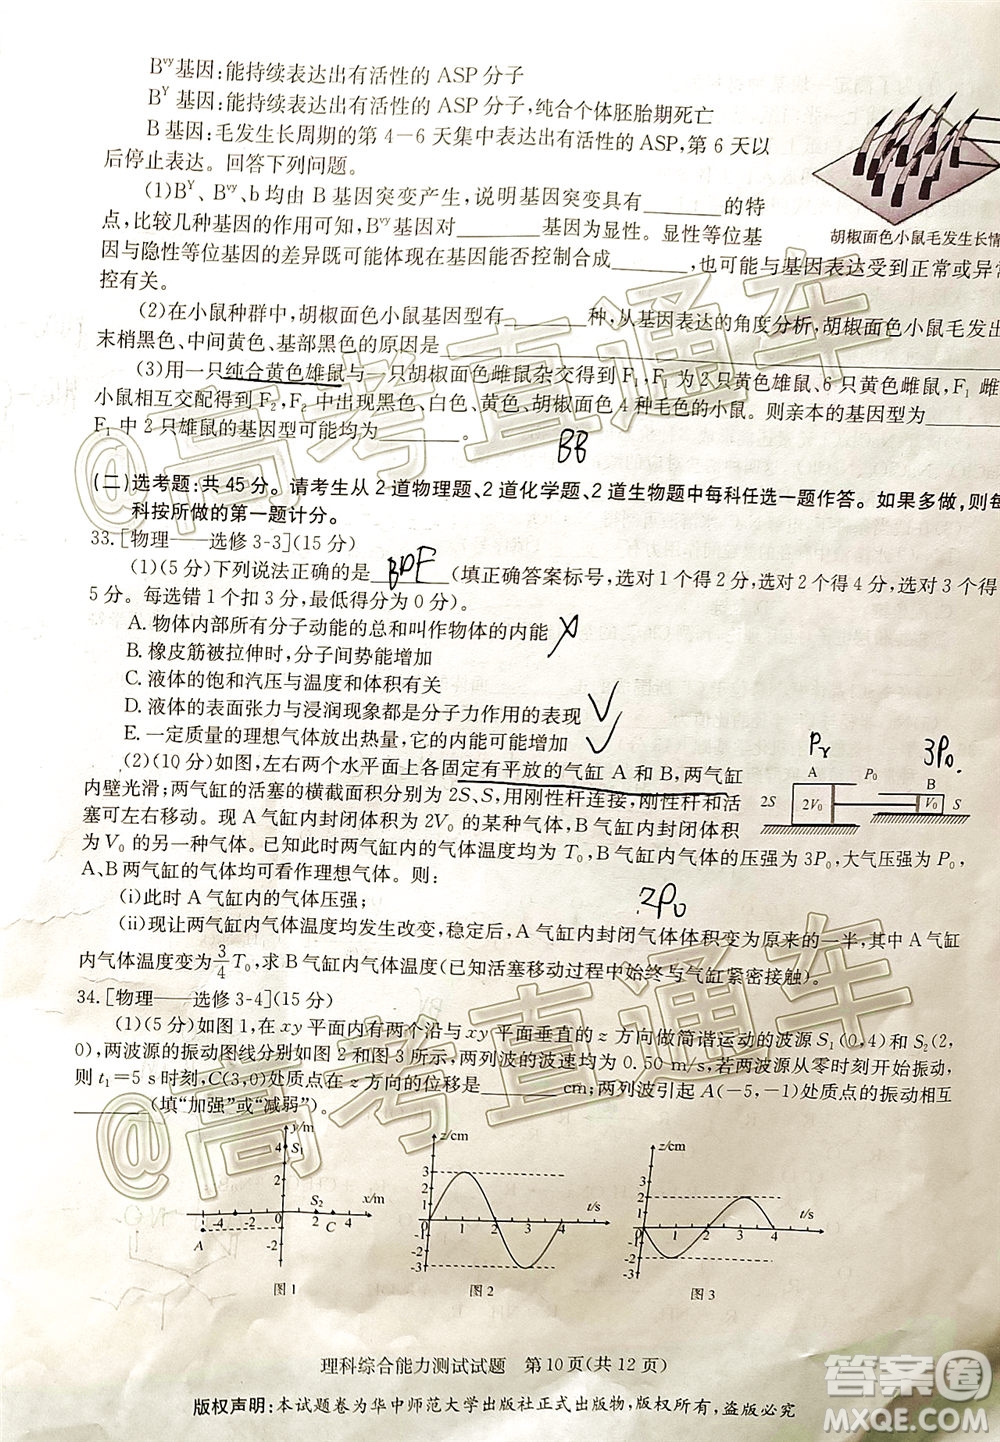 B^vy基因:能持续表达出有活性的 ASP 分子
B^Y基因:能持续表达出有活性的 ASP 分子,纯合个体胚胎期死亡
B 基因:毛发生长周期的第 4-6 天集中表达出有活性的 ASP,第 6 天以
后停止表达。回答下列问题。
(1)B^Y、B^vy、b 均由 B 基因突变产生,说明基因突变具有______的特
点,比较几种基因的作用可知,B^vy基因对______基因为显性。显性等位基
胡椒面色小鼠毛发生长情
因与隐性等位基因的差异既可能体现在基因能否控制合成______,也可能与基因表达受到正常或异常
控有关。
(2)在小鼠种群中,胡椒面色小鼠基因型有______种,从基因表达的角度分析,胡椒面色小鼠毛发出
末梢黑色、中间黄色、基部黑色的原因是______
(3)用一只纯合黄色雄鼠与一只胡椒面色雌鼠杂交得到 F₁,F₁ 为 2 只黄色雄鼠、6 只黄色雌鼠,F₁ 雌
小鼠相互交配得到 F₂,F₂ 中出现黑色、白色、黄色、胡椒面色 4 种毛色的小鼠。则亲本的基因型为______
F₁ 中 2 只雄鼠的基因型可能均为______。
BB
(二)选考题:共 45 分。请考生从 2 道物理题、2 道化学题、2 道生物题中每科任选一题作答。如果多做,则每
科按所做的第一题计分。
33.[物理——选修 3-3](15 分)
(1)(5 分)下列说法正确的是 BDE (填正确答案标号,选对 1 个得 2 分,选对 2 个得 4 分,选对 3 个得
5 分。每选错 1 个扣 3 分,最低得分为 0 分)。
A. 物体内部所有分子动能的总和叫作物体的内能
B. 橡皮筋被拉伸时,分子间势能增加
C. 液体的饱和汽压与温度和体积有关
D. 液体的表面张力与浸润现象都是分子力作用的表现
E. 一定质量的理想气体放出热量,它的内能可能增加
(2)(10 分)如图,左右两个水平面上各固定有平放的气缸 A 和 B,两气缸
内壁光滑;两气缸的活塞的横截面积分别为 2S、S,用刚性杆连接,刚性杆和活
塞可左右移动。现 A 气缸内封闭体积为 2V₀ 的某种气体,B 气缸内封闭体积
为 V₀ 的另一种气体。已知此时两气缸内气体温度均为 T₀,B 气缸内气体的压强为 3P₀,大气压强为 P₀,
A、B 两气缸的气体均可看作理想气体。则:
3P₀
A P₀ B
2S 2V₀ V₀ S
(i)此时 A 气缸内的气体压强;
2P₀
(ii)现让两气缸内气体温度均发生改变,稳定后,A 气缸内封闭气体体积变为原来的一半,其中 A 气缸
内气体温度变为 3/4 T₀,求 B 缸内气体温度(已知活塞移动过程中始终与气缸紧密接触)。
34.[物理——选修 3-4](15 分)
(1)(5 分)如图 1,在 xy 平面内有两个沿与 xy 平面垂直的 z 方向做简谐运动的波源 S₁(0,4)和 S₂(2,
0),两波源的振动图线分别如图 2 和图 3 所示,两列波的波速均为 0.50 m/s,若两波源从零时刻开始振动,
则 t₁=5 s 时刻,C(3,0)处质点在 z 方向的位移是______cm;两列波引起 A(-5,-1)处质点的振动相互
______(填“加强”或“减弱”)。
y/m
4 S₁
2
-4 -2 0 2 4 x/m
S₂
C
A
-2
图 1
z/cm
3
2
1
0 1 2 3 4 t/s
-1
-2
-3
图 2
z/cm
3
2
1
0 1 2 3 4 t/s
-1
-2
-3
图 3
理科综合能力测试试题 第 10 页(共 12 页)
版权声明:本试题卷为华中师范大学出版社正式出版物,版权所有,盗版必究
@高考直通车
@高考直通车
答案圈
MXQE.COM